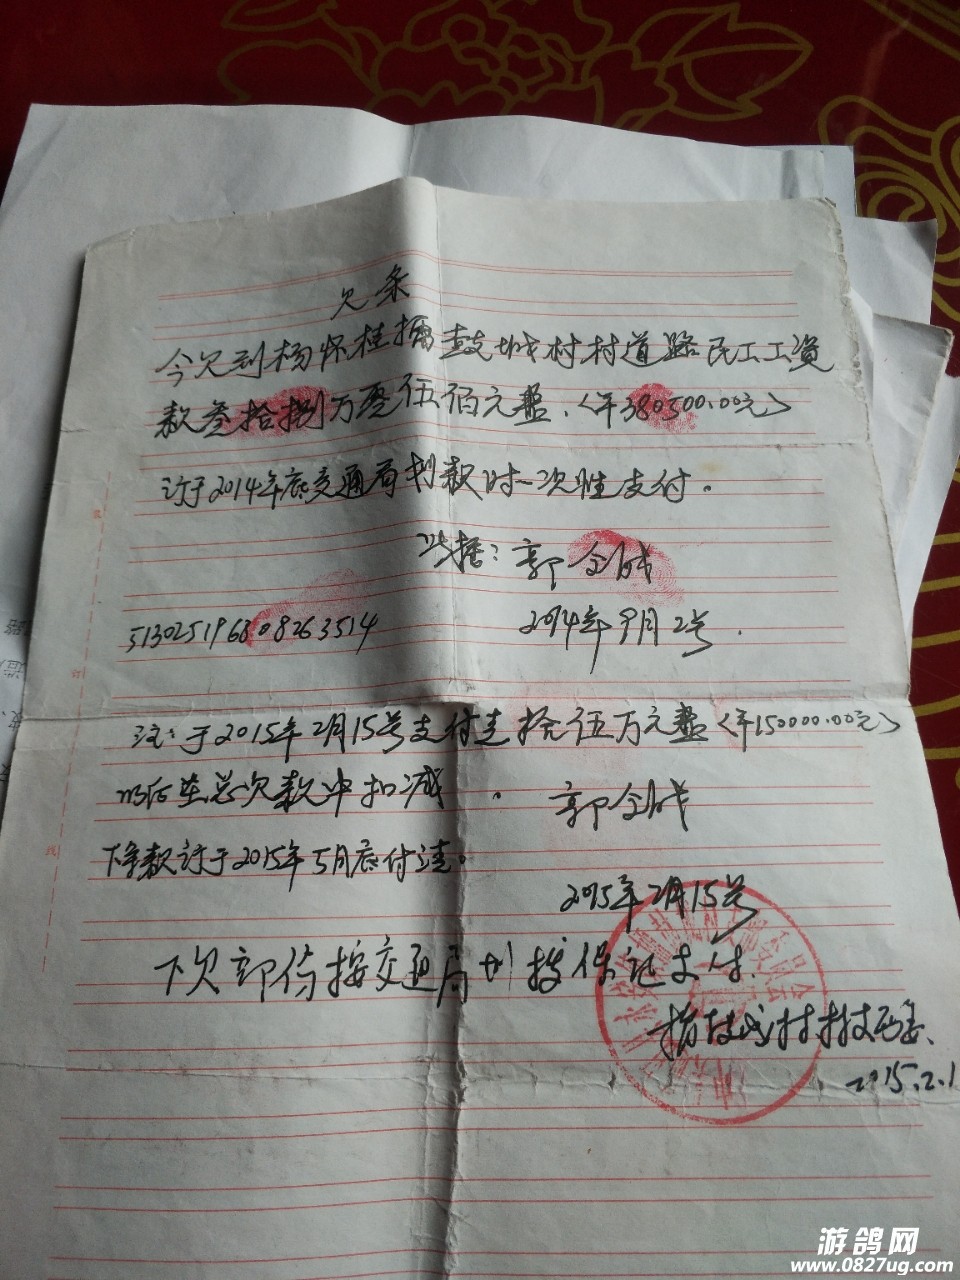 欠条
今欠到杨怀桂擂鼓城村村道路民工工资
款叁拾捌万零伍佰元整.<¥380500.00元>
订于2014年底交通局划款时一次性支付。
此据:郭金成
513025196808263514
2014年9月2号.
注:于2015年2月15号支付连拾伍万元整<¥150000.00元>
以后在总欠款中扣减.
郭金成
下余款订于2015年5月底付清。
2015年2月15号
下欠部份按交通局划拨保证支付.
擂鼓城村村委.
2015.2.1
游鸽网
www.0827ug.com